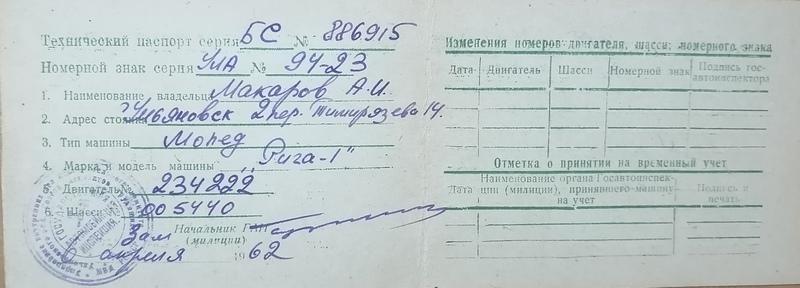 Технический паспорт серия БС № 886915
Номерной знак серия УЛА № 94-23
1. Наименование владельца Макаров А.И.
2. Адрес стоянки г. Ульяновск 2 пер. Тимирязева 14.
3. Тип машины Мопед
4. Марка и модель машины „Рига-1"
5. Двигатель № 234222
6. Шасси № 005440
Зам Начальник ГАИ
(милиции)
апреля 1962
Изменения номеров двигателя, шасси, номерного знака
Дата Двигатель Шасси Номерной знак Подпись гос-
автоинспектора
Отметка о принятии на временный учет
Дата Наименование органа Госавтоинспек-
ции (милиции), принявшего машину
на учет
Подпись и
печать